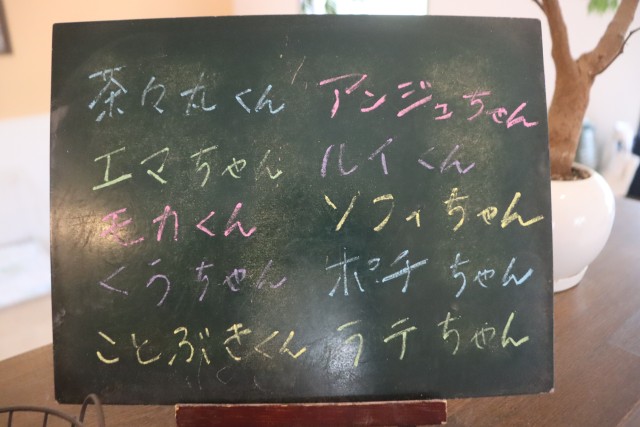 茶々丸くん アンジュちゃん
エマちゃん ルイくん
モカくん ソフィちゃん
くうちゃん ポチちゃん
ことぶきくん ラテちゃん